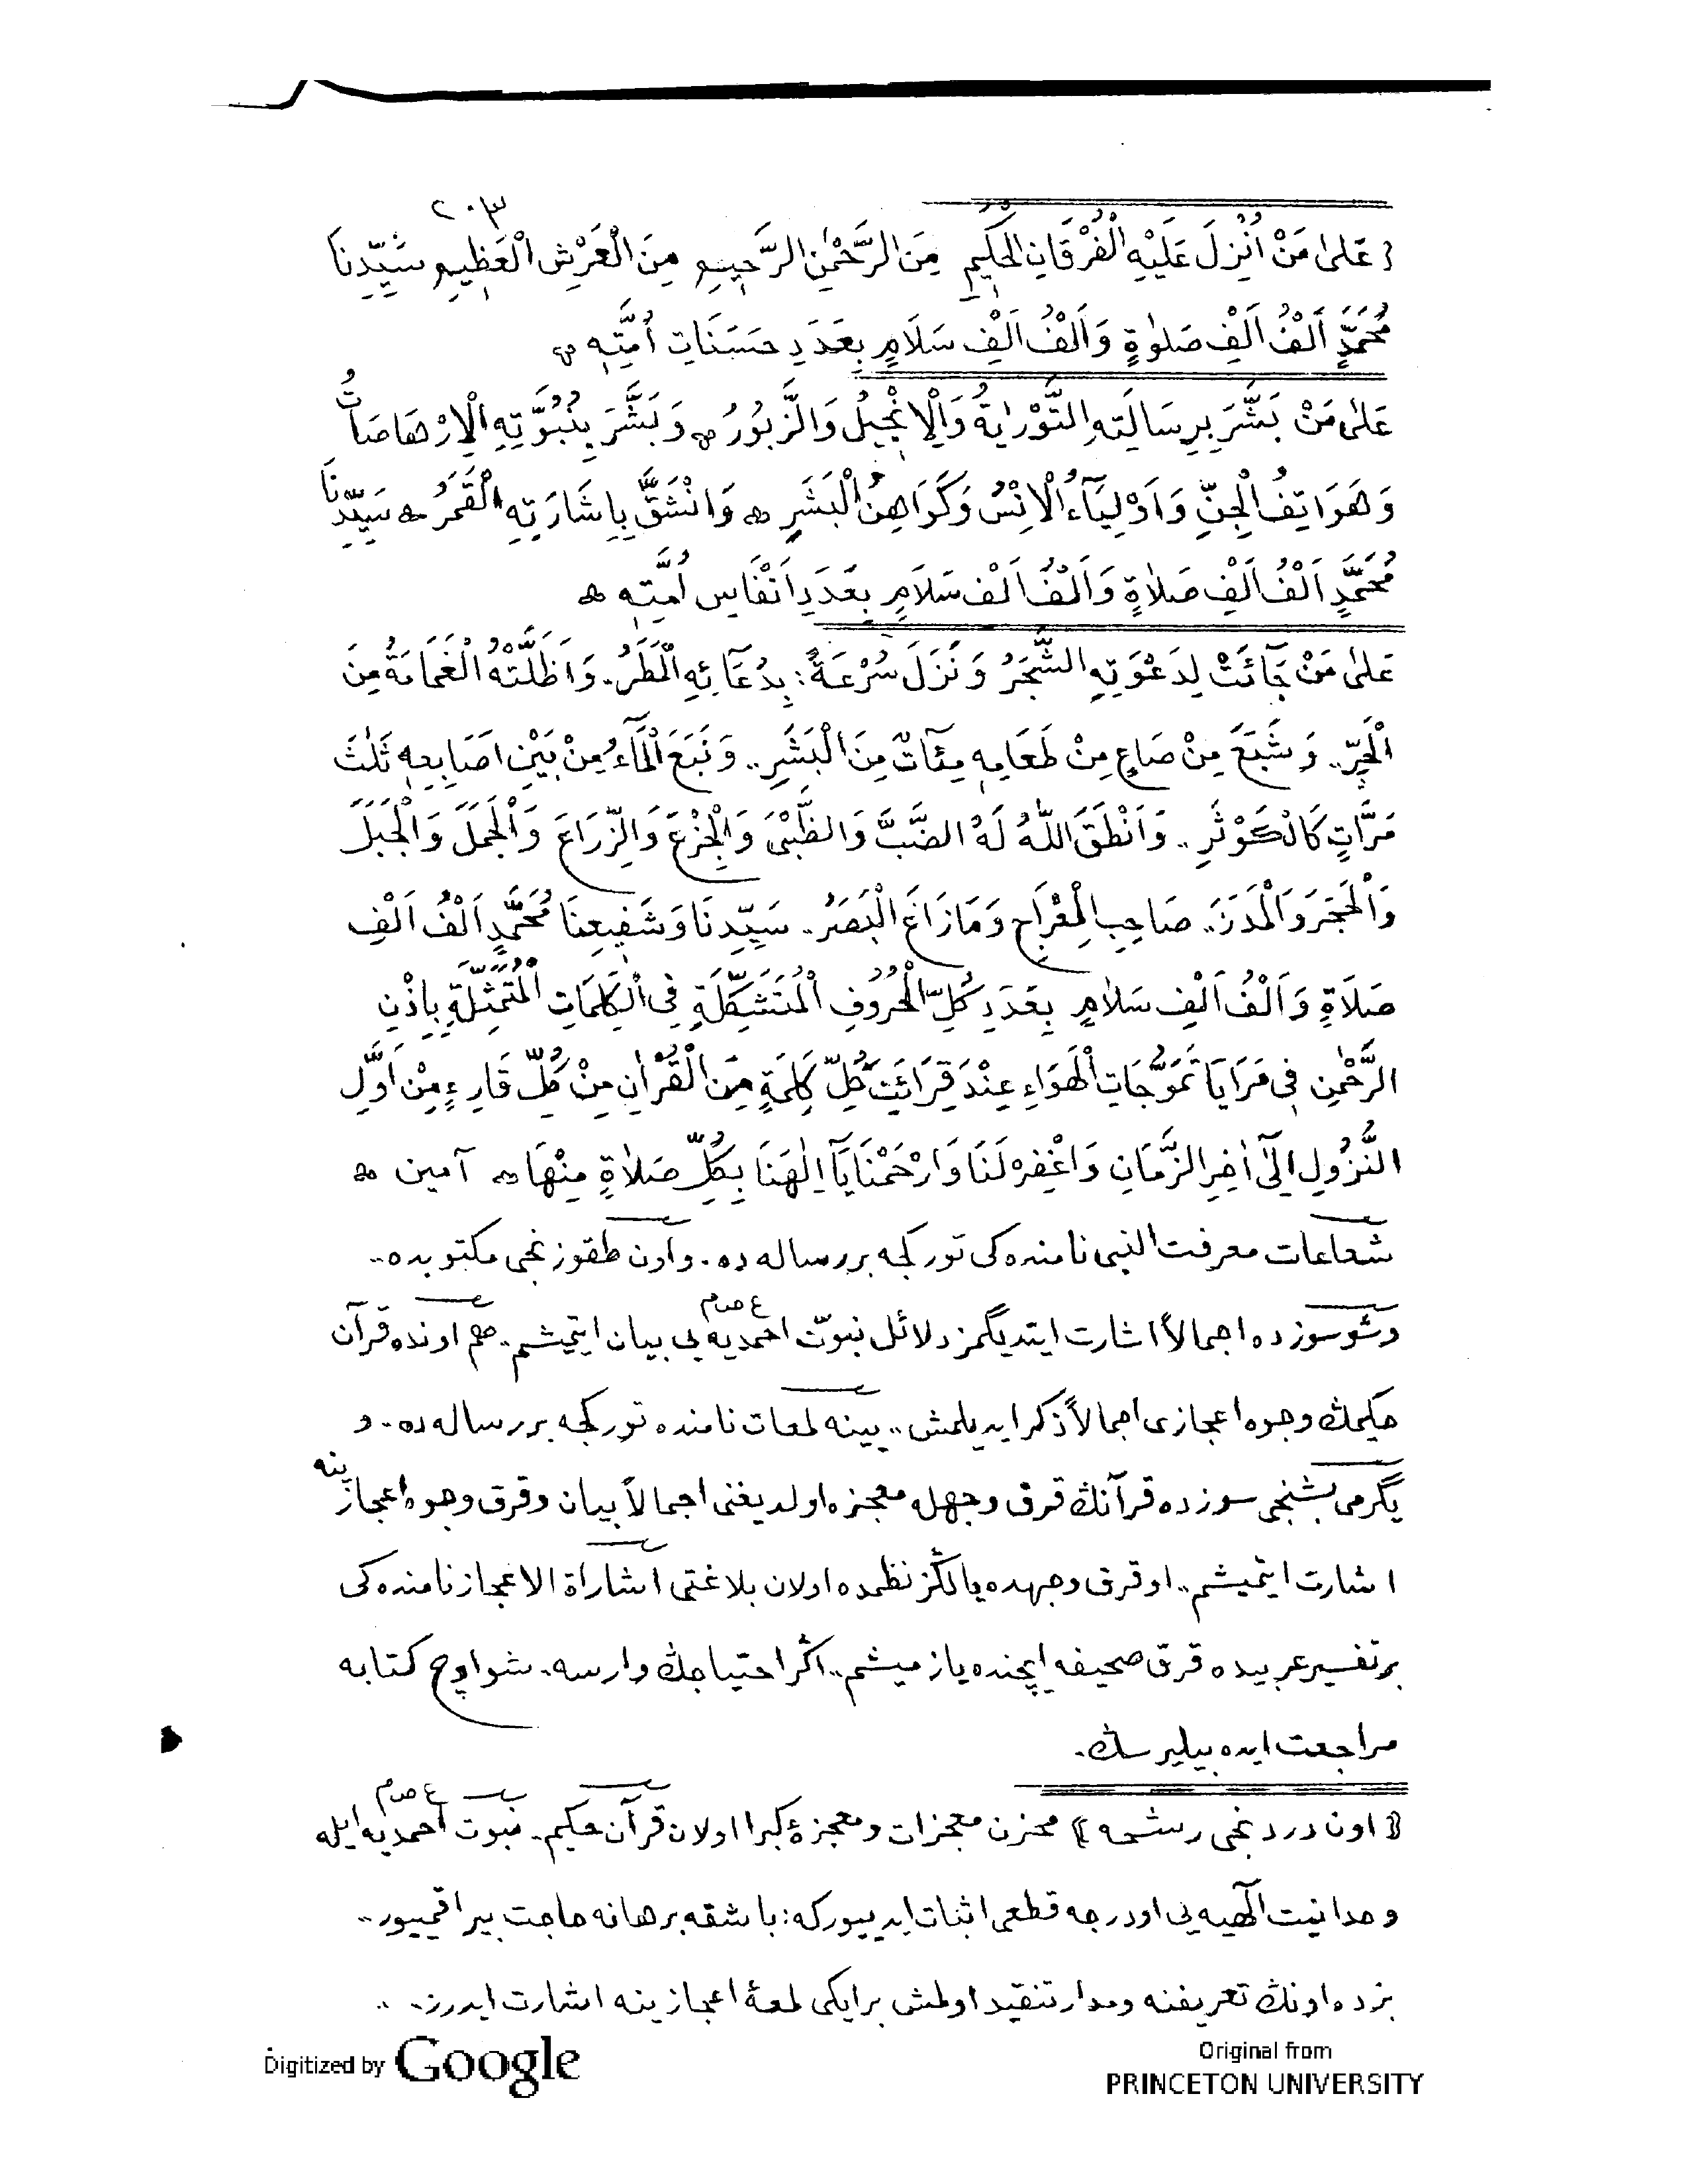 ٢٠٣
﴿ عَلٰى مَنْ اُنْزِلَ عَلَيْهِ الْفُرْقَانِ الْحَكِيمِ مِنَ الرَّحْمٰنِ الرَّحِيمِ مِنَ الْعَرْشِ الْعَظِيمِ سَيِّدِنَا
مُحَمَّدٍ اَلْفُ اَلْفِ صَلٰوةٍ وَاَلْفُ اَلْفِ سَلَامٍ بِعَدَدِ حَسَنَاتِ اُمَّتِهِ
عَلٰى مَنْ بَشَّرَ بِرِسَالَتِهِ التَّوْرٰيةُ وَالْاِنْجِيلُ وَالزَّبُورُ وَبَشَّرَ بِنُبُوَّتِهِ الْاِرْهَاصَاتُ
وَهَوَاتِفُ الْجِنِّ وَاَوْلِيَاۤءُ الْاِنْسِ وَكَوَاهِنُ الْبَشَرِ وَانْشَقَّ بِاِشَارَتِهِ الْقَمَرُ سَيِّدِنَا
مُحَمَّدٍ اَلْفُ اَلْفِ صَلَاةٍ وَاَلْفُ اَلْفِ سَلَامٍ بِعَدَدِ اَنْفَاسِ اُمَّتِهِ
عَلٰى مَنْ جَاۤئَتْ لِدَعْوَتِهِ الشَّجَرُ وَنَزَلَ سُرْعَةً: بِدُعَاۤئِهِ الْمَطَرُ. وَاَظَلَّتْهُ الْغَمَامَةُ مِنَ
الْحَرِّ.. وَشَبَعَ مِنْ صَاعٍ مِنْ طَعَامِهِ مِئَاۤتٌ مِنَ الْبَشَرِ.. وَنَبَعَ الْمَاۤءُ مِنْ بَيْنِ اَصَابِعِهِ ثَلٰثَ
مَرَّاتٍ كَالْكَوْثَرِ.. وَاَنْطَقَ اللّٰهُ لَهُ الضَّبَّ وَالظَّبْىَ وَالْجِزْعَ وَالزِّرَاعَ وَالْجَمَلَ وَالْجَبَلَ
وَالْحَجَرَ وَالْمَدَرَ.. صَاحِبِ الْمِعْرَاجِ وَمَا زَاغَ الْبَصَرُ.. سَيِّدِنَا وَشَفِيعِنَا مُحَمَّدٍ اَلْفُ اَلْفِ
صَلَاةٍ وَاَلْفُ اَلْفِ سَلَامٍ بِعَدَدِ كُلِّ الْحُرُوفِ الْمُتَشَكِّلَةِ فِى الْكَلِمَاتِ الْمُتَمَثِّلَةِ بِاِذْنِ
الرَّحْمٰنِ فِى مَرَايَا تَمَوُّجَاتِ الْهَوَاءِ عِنْدَ قِرَائَتِ كُلِّ كَلِمَةٍ مِنَ الْقُرْاٰنِ مِنْ كُلِّ قَارِءٍ مِنْ اَوَّلِ
النُّزُولِ اِلٰۤى اٰخِرِ الزَّمَانِ وَاغْفِرْ لَنَا وَارْحَمْنَا يَاۤ اِلٰهَنَا بِكُلِّ صَلَاةٍ مِنْهَا آمين
شعاعات معرفت النبى نامنده كى توركجه بر رساله ده. واون طقوزنجى مكتوبده..
وشو سوزده اجمالاً اشارت ايتديگمز دلائل نبوّت احمديه يى بيان ايتمشم. هم اونده قرآن
ع صم
حكيمڭ وجوه اعجازى اجمالاً ذكر ايديلمش.. يينه لمعات نامنده توركجه بر رساله ده.. و
يگرمى بشنجى سوزده قرآنڭ قرق وجهله معجزه اولديغنى اجمالاً بيان وقرق وجوه اعجازينه
اشارت ايتمشم.. او قرق وجهده يالڭز نظمده اولان بلاغتى اشاراة الاعجاز نامنده كى
بر تفسير عربيده قرق صحيفه ايچنده يازمشم.. اگر احتياجڭ وارسه. شو اوچ كتابه
مراجعت ايده بيليرسڭ.
﴿ اون دردنجى رشحه ﴾ مخزن معجزات ومعجزۀ كبرا اولان قرآن حكيم. نبوت احمديه ايله
ع صم
وحدانيت الٓهيه يى او درجه قطعى اثبات ايدييوركه: باشقه برهانه حاجت بيراقمييور..
بزده اونڭ تعريفنه ومدار تنقيد اولمش بر ايكى لمعۀ اعجازينه اشارت ايدرز. ..
Digitized by Google
Original from
PRINCETON UNIVERSITY